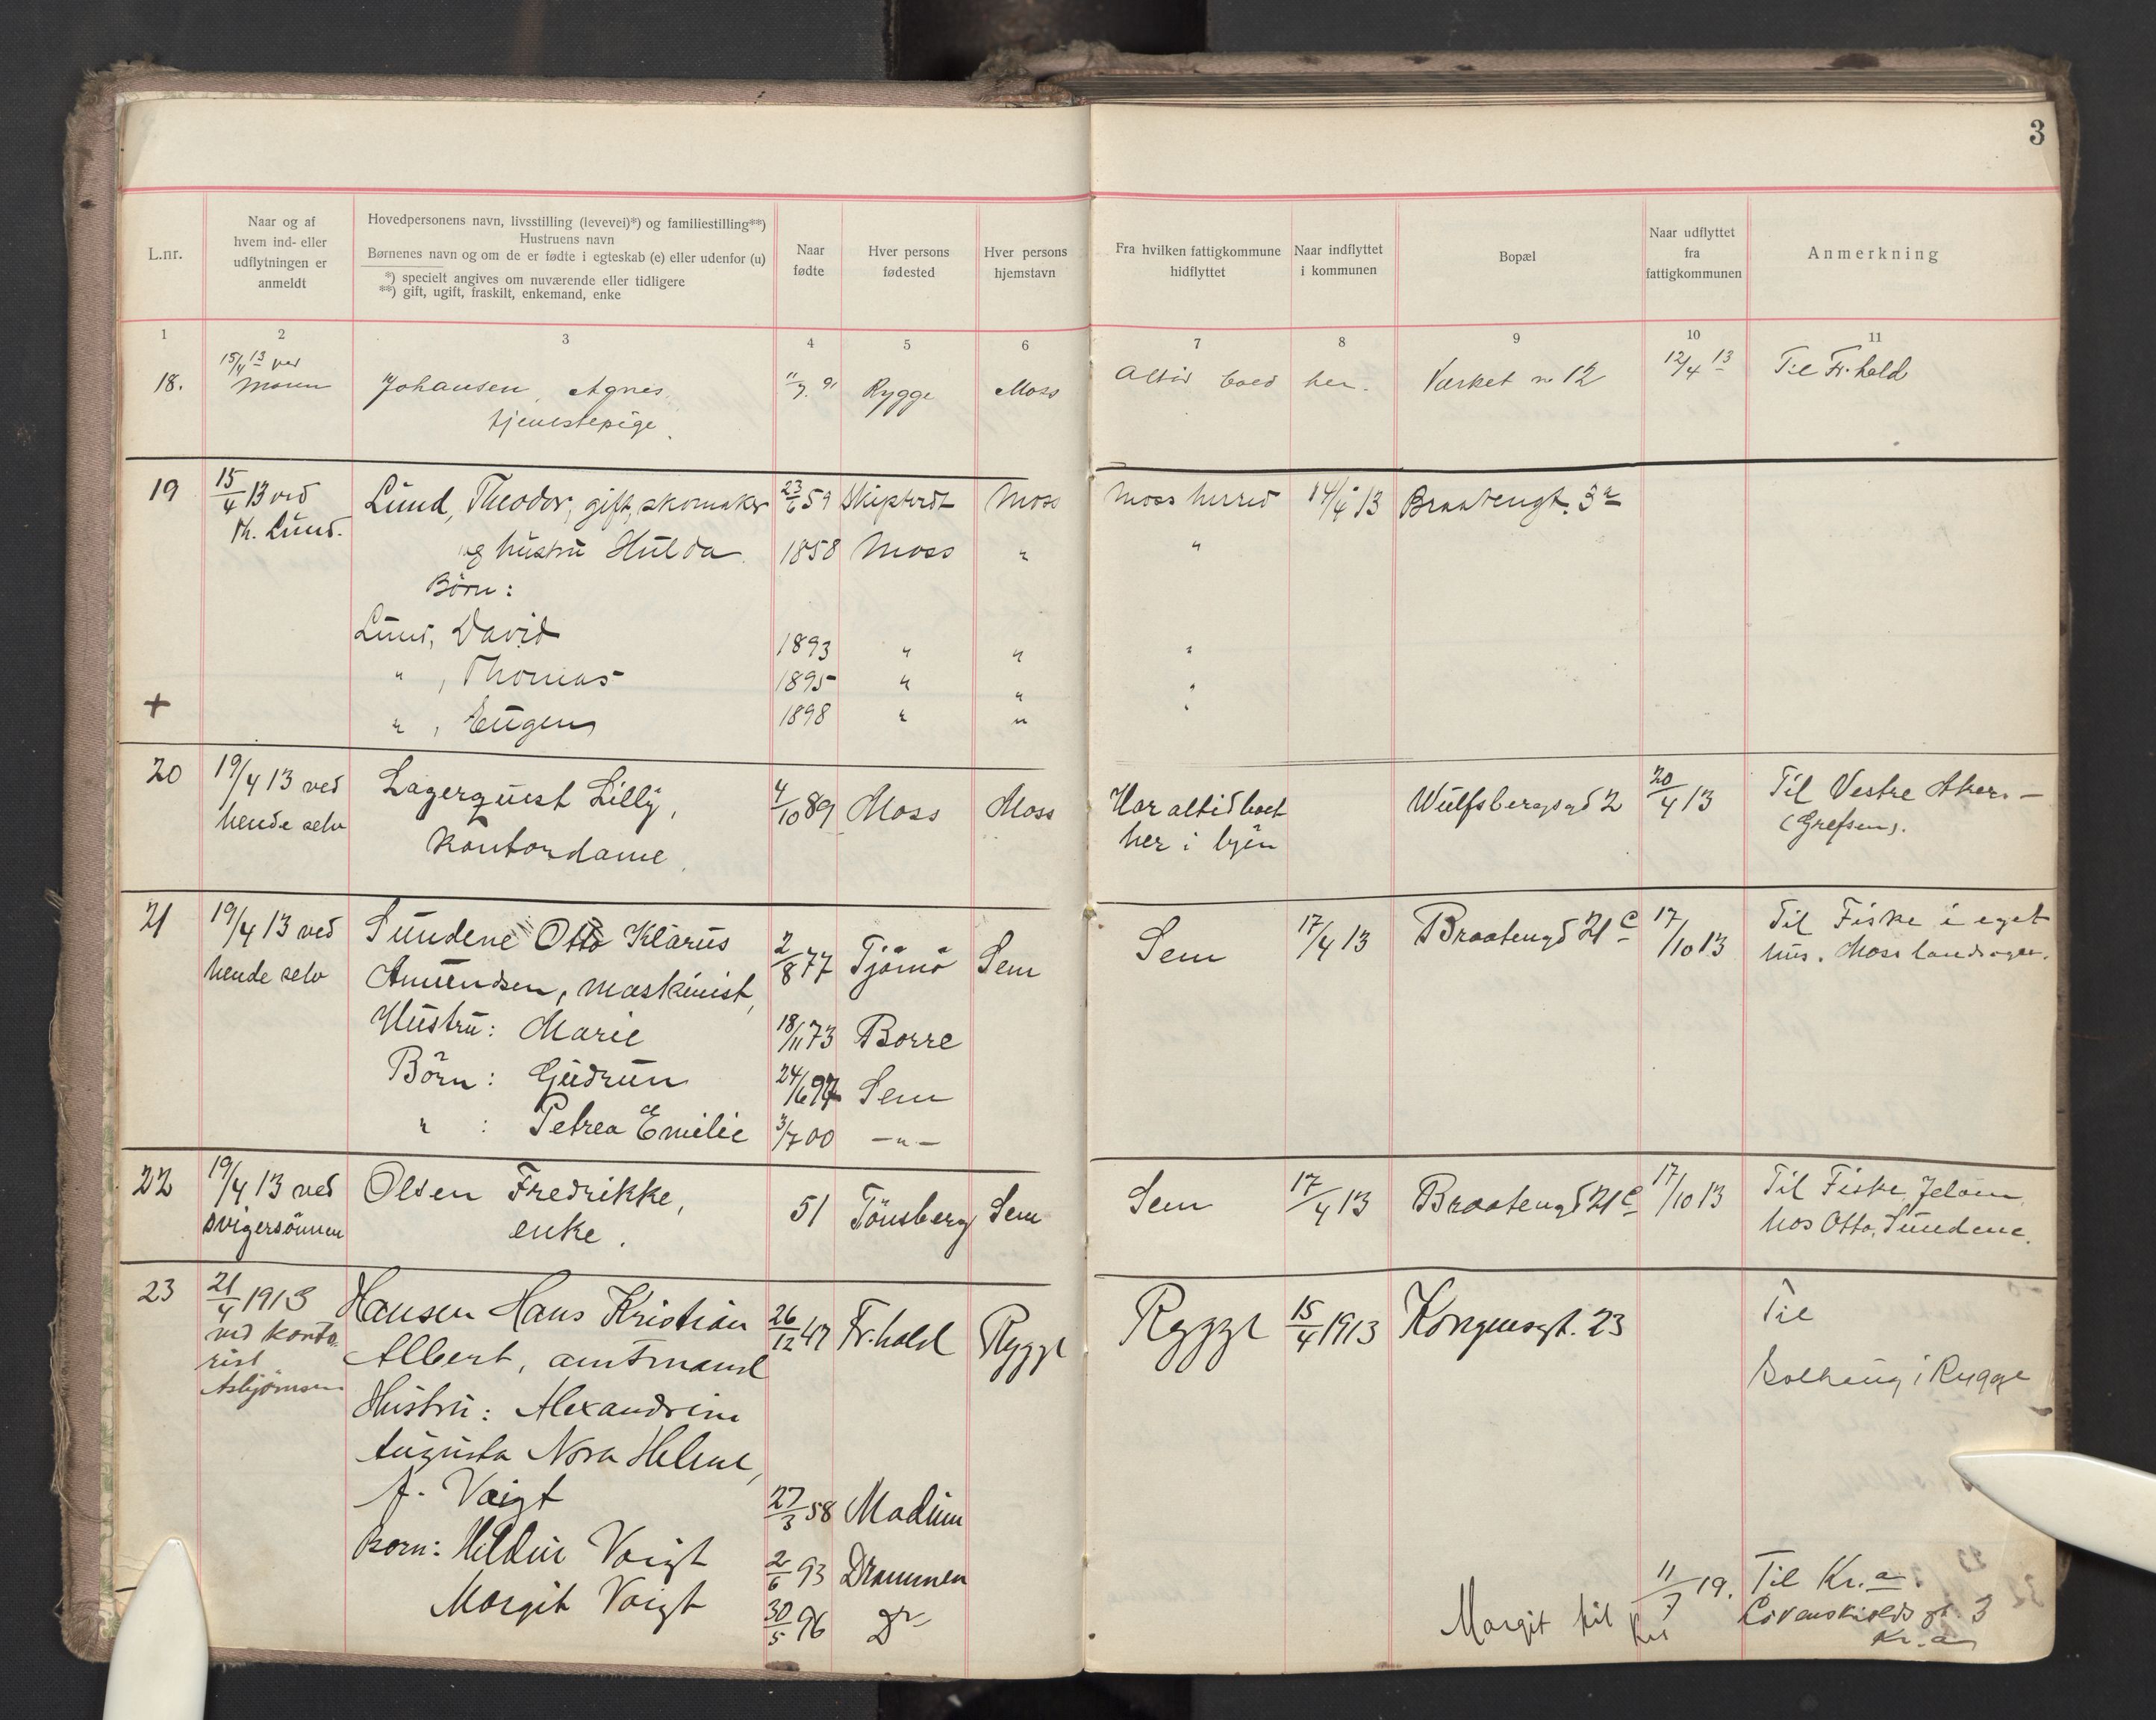 3
L.nr.
Naar og af
hvem ind- eller
udflytningen er
anmeldt
Hovedpersonens navn, livsstilling (levevei)*) og familiestilling**)
Hustruens navn
Børnenes navn og om de er fødte i egteskab (e) eller udenfor (u)
*) specielt angives om nuværende eller tidligere
**) gift, ugift, fraskilt, enkemand, enke
Naar
fødte
Hver persons
fødested
Hver persons
hjemstavn
Fra hvilken fattigkommune
hidflyttet
Naar indflyttet
i kommunen
Bopæl
Naar udflyttet
fra
fattigkommunen
Anmerkning
1 2 3 4 5 6 7 8 9 10 11
15/4 13 ved
18. Johansen, Agnes Rygge Moss Altid boed her. Værket no 12 12/4 13 Til Fr.hald
tjenestepige
19 15/4 13 ved Lund, Theodor, gift, skomaker 23/6 59 Skiptvedt Moss Moss herred 14/4 13 Braatengt. 3a
Th. Lund.
og hustru Hulda. 1858 Moss " "
Børn:
Lund, David 1893 " " "
" , Thomas 1895 " " "
+ " , Eugen 1898 " " "
20 19/4 13 ved Lagerquest Lilly, 4/10 89 Moss Moss Har altid boet Wulfsbergsgd 2 20/4 13 Til Vestre Aker. –
hende selv Kontordame. her i byen (Grefsen).
21 19/4 13 ved Sundene Otto Klarus 2/8 77 Tjömö Sem Sem 17/4 13 Braatengd 21c 17/10 13 Til Fiske i eget
hende selv Amundsen, maskinist, hus. Moss landsogn.
Hustru: Marie 18/11 73 Borre
Börn: Gudrun 24/6 97 Sem
" : Petrea Emilie 3/7 00 — " —
22 19/4 13 ved Olsen Fredrikke, 51 Tönsberg Sem Sem 17/4 13 Braatengd 21c 17/10 13 Til Fiske, Jeløen
svigersönnen enke. hos Otto Sundene.
23 21/4 1913 Hansen Hans Kristian 26/12 47 Fr.hald Rygge Rygge 15/4 1913 Kongensgt. 23 Til
ved konto-
rist Albert, amtmand
Asbjørnsen Solhaug i Rygge
Hustru: Alexandrine
Augusta Nora Helene,
f. Voigt 27/3 58 Modum
Børn: Hildur Voigt 2/6 93 Drammen
Margit Voigt 30/5 96 do
Margit til Kra 11/7 19. Til Kr.a.
Løvenskiolds gt. 3
Kr.a